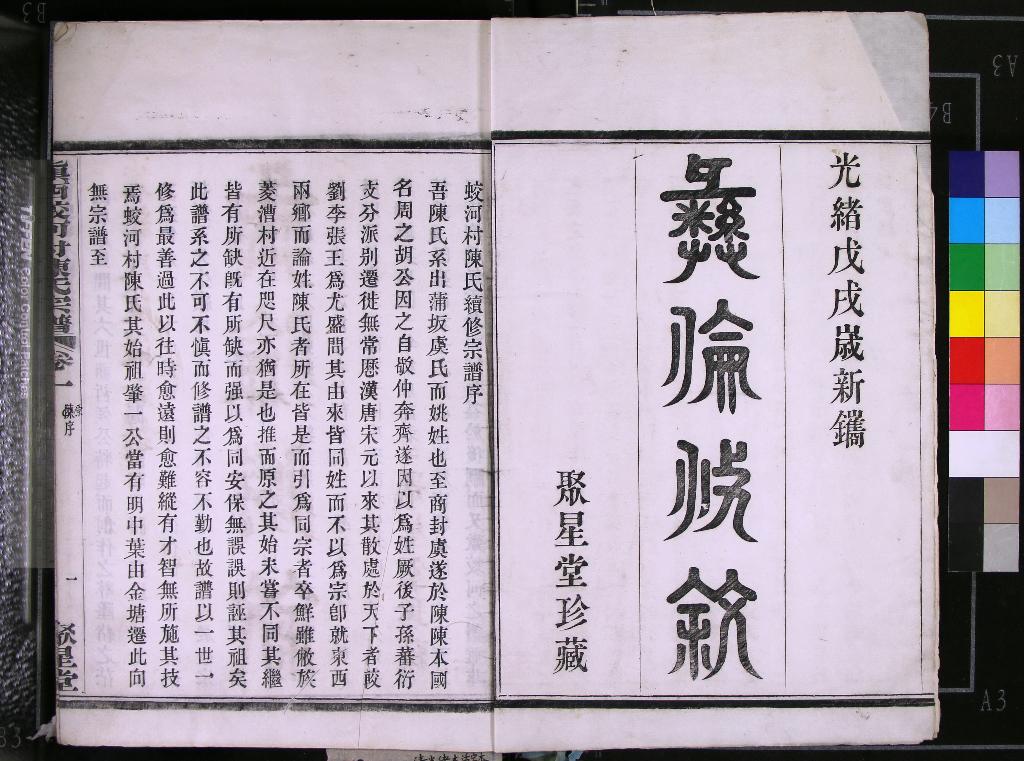 光緒戊戌歲新鐫
彝倫攸敘
聚星堂珍藏
蛟河村陳氏續修宗譜序
吾陳氏系出蒲坂虞氏而姚姓也至商封虞遂於陳陳本國
名周之胡公因之自敬仲奔齊遂因以爲姓厥後子孫蕃衍
支分派別遷徙無常歷漢唐宋元以來其散處於天下者較
劉李張王爲尤盛問其由來皆同姓而不以爲宗卽就東西
兩鄉而論姓陳氏者所在皆是而引爲同宗者卒鮮雖敝族
菱漕村近在咫尺亦猶是也推而原之其始未嘗不同其繼
皆有所缺旣有所缺而强以爲同安保無誤誤則誣其祖矣
此譜系之不可不愼而修譜之不容不勤也故譜以一世一
修爲最善過此以往時愈遠則愈難縱有才智無所施其技
焉蛟河村陳氏其始祖肇一公當有明中葉由金塘遷此向
無宗譜至
鎭西蛟河村陳氏宗譜
卷一
序
一
聚星堂
A3
B4
A3
B3